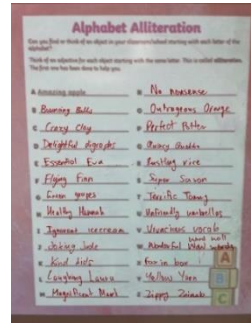 Alphabet Alliteration
Can you find or think of an object in your classroom/school starting with each letter of the alphabet?
Think of an adjective for each object starting with the same letter. This is called alliteration.
The first one has been done to help you.
A Amazing apple
B Bouncing Balls
C Crazy Clay
D Delightful digraphs
E Essential Eva
F Flying Finn
G Green grapes
H Healthy Hannah
I Ignorant icecream
J Joking Jude
K Kind kids
L Laughing Laura
M Magnificent Mark
N No nonsense
O Outrageous Orange
P Perfect
Q Quirky
R rice
S Super
T Terrific
U umbrellas
V vocab
W Wonderful words
X Fox in box
Y Yellow Yarn
Z Zippy Zainab
A
B
C